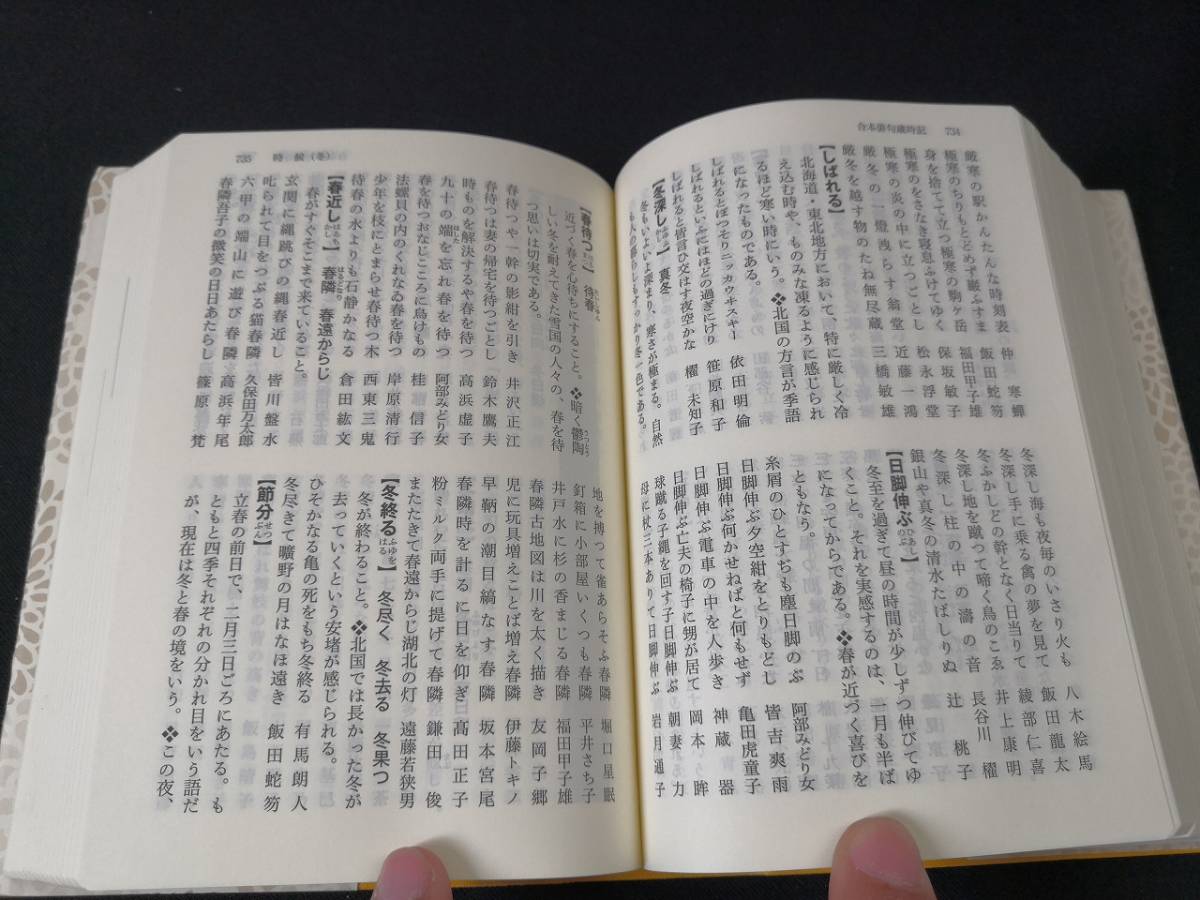 合本俳句歳時記 734
厳寒の駅かんたんな時刻表 仲寒蟬
極寒のちりもとどめず巌ふすま 飯田蛇笏
身を捨てて立つ極寒の駒ヶ岳 福田甲子雄
極寒のをさなき寝息ふけてゆく 保坂敏子
極寒の炎の中に立つごとし 松永浮堂
厳冬の一燈洩らす翁堂 近藤一鴻
厳冬を越す物のたね無尽蔵 三橋敏雄
【しばれる】
北海道・東北地方において、特に厳しく冷
え込む時や、ものみな凍るように感じられ
るほど寒い時にいう。❖北国の方言が季語
になったものである。
しばれるとぼつそりニッカウヰスキー 依田明倫
しばれるといふにはほどの過ぎにけり 笹原和子
しばれると皆言ひ交はす夜空かな 櫂未知子
【冬深し ふゆふかし】 真冬
冬もいよいよ深まり、寒さが極まる。自然
も人の暮らしもすっかり冬一色である。
冬深し海も夜毎のいさり火も 八木絵馬
冬深し手に乗る禽の夢を見て 飯田龍太
冬ふかしどの幹となく日当りて 綾部仁喜
冬深し地を蹴つて啼く鳥のこゑ 井上康明
冬深し柱の中の濤の音 長谷川櫂
銀山や真冬の清水たばしりぬ 辻桃子
【日脚伸ぶ ひあしのぶ】
冬至を過ぎて昼の時間が少しずつ伸びてゆ
くこと。それを実感するのは、一月も半ば
になってからである。❖春が近づく喜びを
ともなう。
糸屑のひとすぢも塵日脚のぶ 阿部みどり女
日脚伸ぶ夕空紺をとりもどし 皆吉爽雨
日脚伸ぶ何かせねばと何もせず 亀田虎童子
日脚伸ぶ電車の中を人歩き 神蔵器
日脚伸ぶ亡夫の椅子に甥が居て 岡本眸
球蹴る子縄を回す子日脚伸ぶ 朝妻力
母に杖三本ありて日脚伸ぶ 岩月通子
735 時候(冬)
【春待つ はるまつ】 待春 たいしゅん
近づく春を心待ちにすること。❖暗く鬱陶 うっとう
しい冬を耐えてきた雪国の人々の、春を待
つ思いは切実である。
春待つや一幹の影紺を引き 井沢正江
春待つは妻の帰宅を待つごとし 鈴木鷹夫
時ものを解決するや春を待つ 高浜虚子
九十の端 はした を忘れ春を待つ 阿部みどり女
春を待つおなじこころに鳥けもの 桂信子
法螺貝の内のくれなゐ春を待つ 岸原清行
少年を枝にとまらせ春待つ木 西東三鬼
待春の水よりも石静かなる 倉田紘文
【春近し はるちかし】 春隣 はるどなり 春遠からじ
春がすぐそこまで来ていること。
玄関に縄跳びの縄春近し 皆川盤水
叱られて目をつぶる猫春隣 久保田万太郎
六甲の端山に遊び春隣 高浜年尾
春隣吾子の微笑の日日あたらし 篠原梵
地を搏つて雀あらそふ春隣 堀口星眠
釘箱に小部屋いくつも春隣 平井さち子
井戸水に杉の香まじる春隣 福田甲子雄
春隣古地図は川を太く描き 友岡子郷
児に玩具増えことば増え春隣 伊藤トキノ
早鞆の潮目縞なす春隣 坂本宮尾
春隣時を計るに日を仰ぎ 高田正子
粉ミルク両手に提げて春隣 鎌田俊
またたきて春遠からじ湖北の灯 遠藤若狭男
【冬終る ふゆをはる】 冬尽く 冬去る 冬果つ
冬が終わること。❖北国では長かった冬が
去っていくという安堵が感じられる。
ひそかなる亀の死をもち冬終る 有馬朗人
冬尽きて曠野の月はなほ遠き 飯田蛇笏
【節分 せつぶん】
立春の前日で、二月三日ごろにあたる。も
ともと四季それぞれの分かれ目をいう語だ
が、現在は冬と春の境をいう。❖この夜、